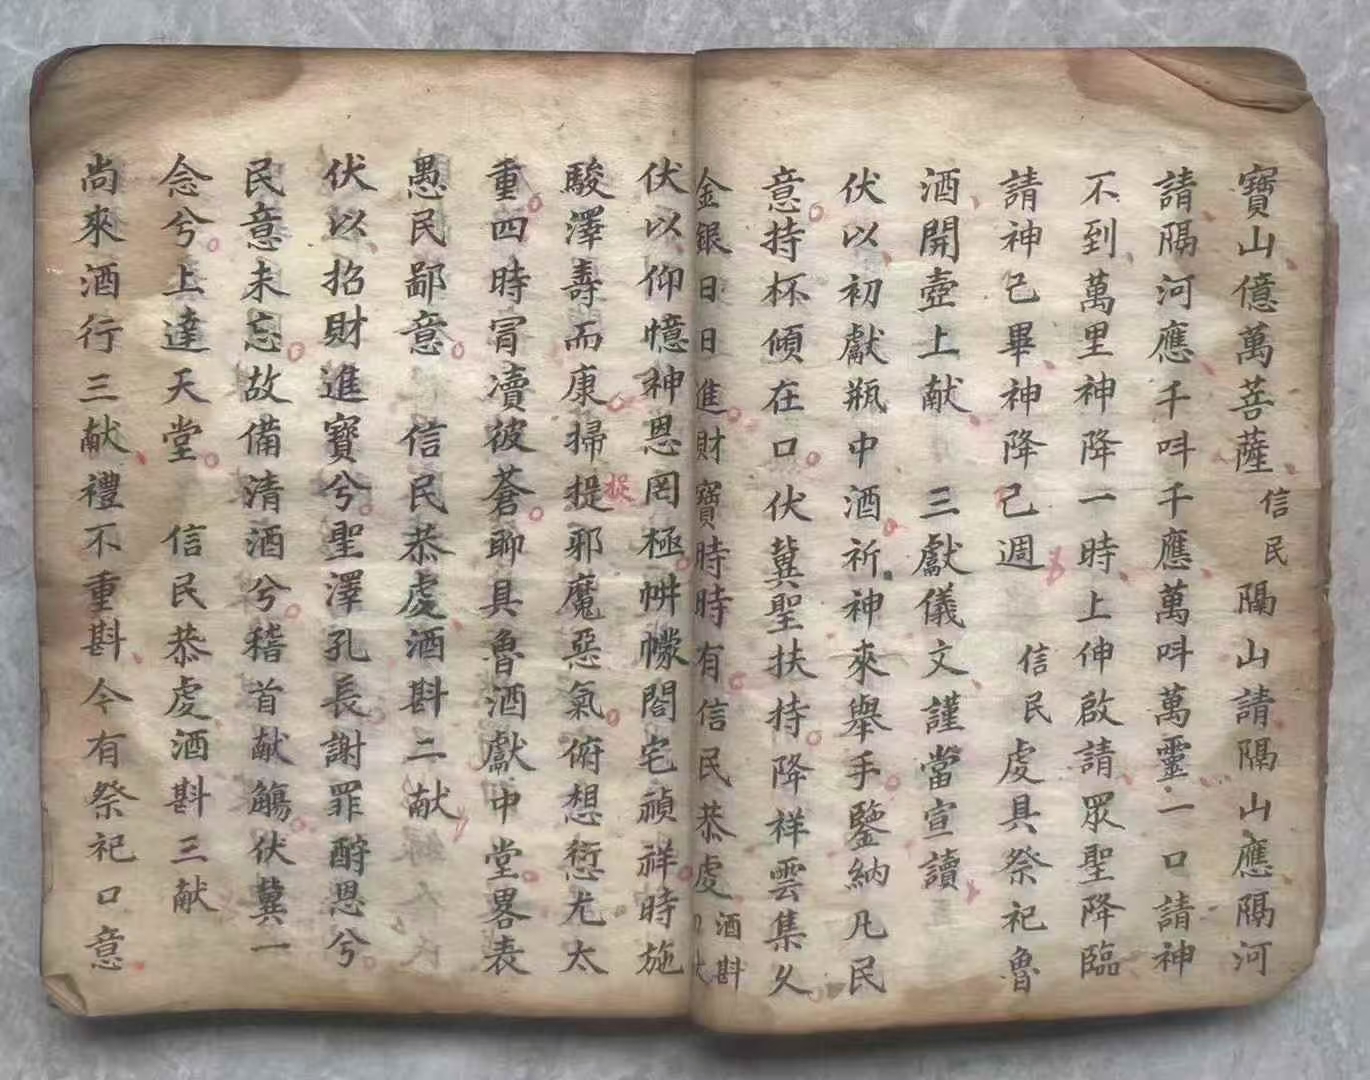 寶山億萬菩薩信民隔山請隔山應隔河
請隔河應千呌千應萬呌萬靈一口請神
不到萬里神降一時上伸啟請眾聖降臨
請神已畢神降已週信民虔具祭祀魯
酒開壺上献三獻儀文謹當宣讀
伏以初獻瓶中酒祈神來舉手鑒納凡民
意持杯傾在口伏冀聖扶持降祥雲集久
金銀日日進財寶時時有信民恭虔酒斟
伏以仰憶神恩罔極帡幪閤宅禎祥時施
駿澤壽而康掃提邪魔惡氣俯想愆尤太
捉
重四時冐瀆彼蒼聊具魯酒獻中堂畧表
愚民鄙意信民恭虔酒斟二献
伏以招財進寶兮聖澤孔長謝罪酧恩兮
民意未忘故備清酒兮稽首献觴伏冀一
念兮上達天堂信民恭虔酒斟三献
尚來酒行三献禮不重斟今有祭祀口意